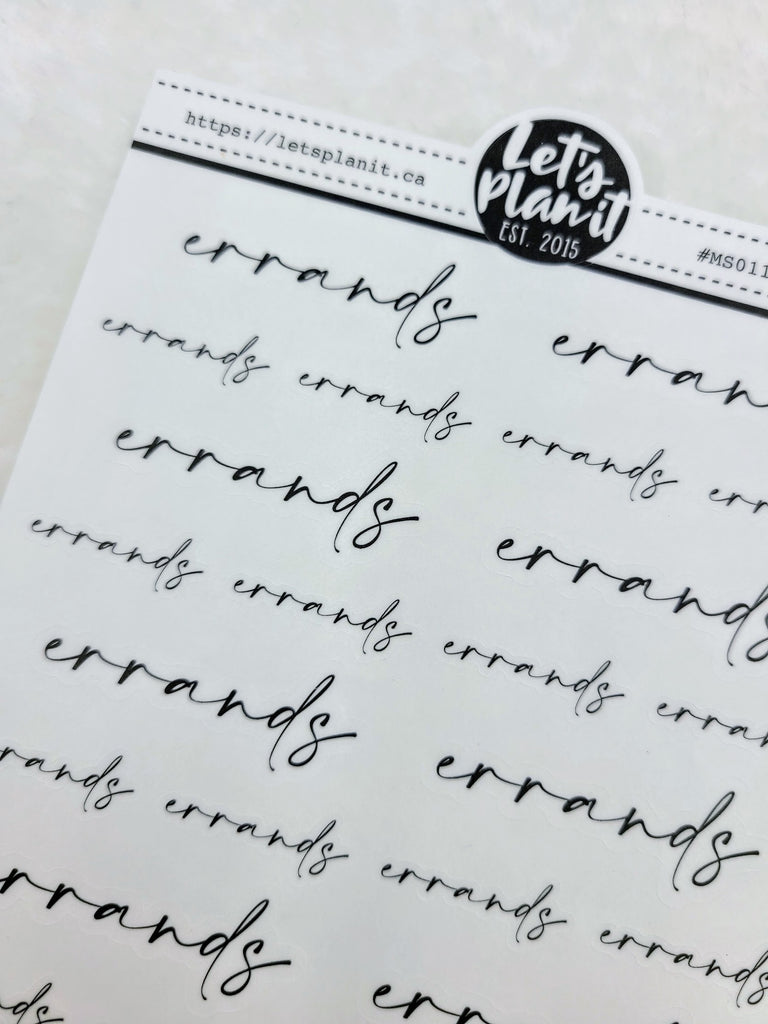 https://letsplanit.ca
Let's
plan it
EST. 2015
#MS011
errands erran
errands errands errands err
errands errands
errands errands errands erran
errands errands
rands errands errands errands
rrands err
ds